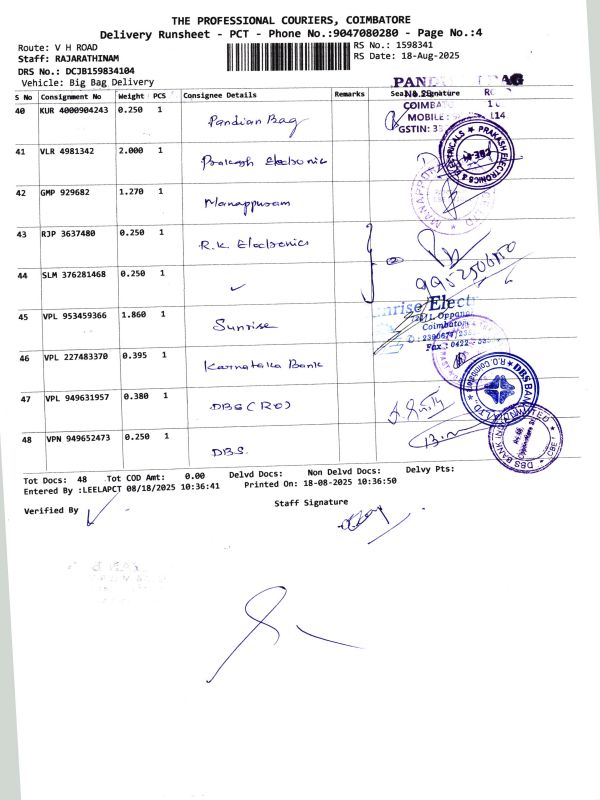 THE PROFESSIONAL COURIERS, COIMBATORE
Delivery Runsheet - PCT - Phone No.:9047080280 - Page No.:4
Route: V H ROAD
RS No.: 1598341
Staff: RAJARATHINAM
RS Date: 18-Aug-2025
DRS No.: DCJB159834104
Vehicle: Big Bag Delivery
S No Consignment No Weight PCS Consignee Details Remarks Seal Signature
40 KUR 4000904243 0.250 1 Pandian Bag
COIMBA
MOBILE: 114
GSTIN: 33
41 VLR 4981342 2.000 1 Prakash Electronic
PRAKASH ELECTRONICS & ELECTRICALS
42 GMP 929682 1.270 1 Manappuram
43 RJP 3637480 0.250 1 R.K. Electronics
9952506150
44 SLM 376281468 0.250 1 ✓
45 VPL 953459366 1.860 1 Sunrise
nrise Elect
Oppana
Coimbato
Fax : 0422
46 VPL 227483370 0.395 1 Karnataka Bank
47 VPL 949631957 0.380 1 DBS (RO)
DBS BANK
R.O. COIMBATORE
48 VPN 949652473 0.250 1 DBS
DBS BANK INDIA LIMITED
CBE
Tot Docs: 48 Tot COD Amt: 0.00 Delvd Docs: Non Delvd Docs: Delvy Pts:
Entered By :LEELAPCT 08/18/2025 10:36:41 Printed On: 18-08-2025 10:36:50
Staff Signature
Verified By